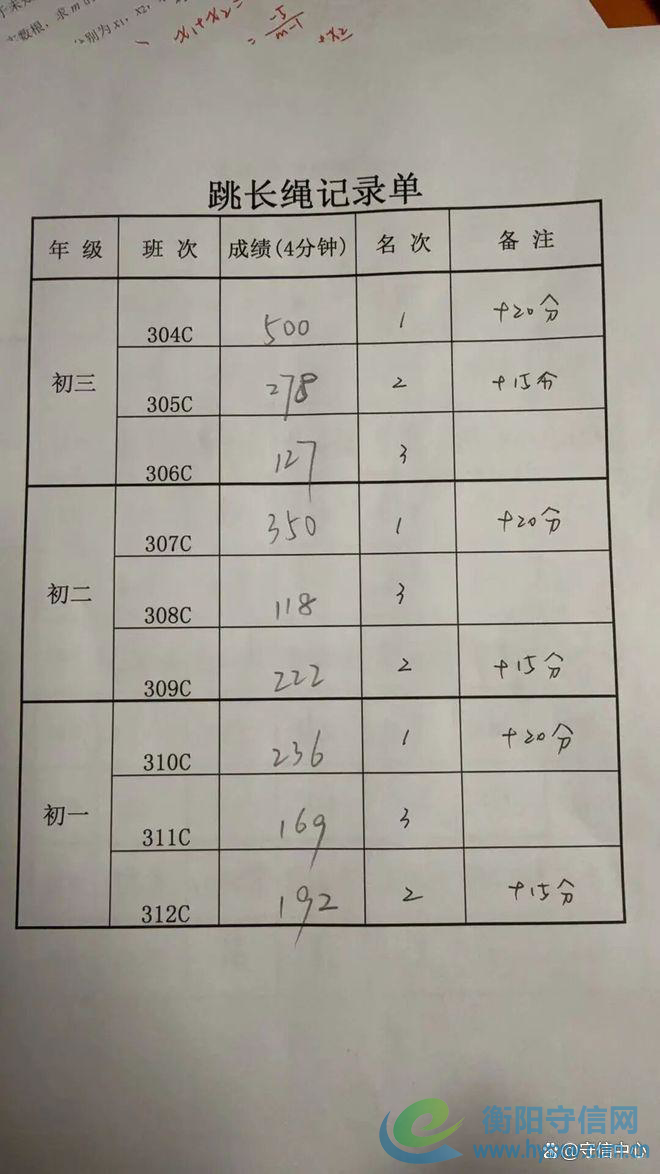 数根，求 m
别为 x₁，x₂，
x₁+x₂=
= -5/(m-1)
+x2
跳长绳记录单
年 级 班 次 成绩(4分钟) 名 次 备 注
初三 304C 500 1 +20分
305C 278 2 +15分
306C 127 3
初二 307C 350 1 +20分
308C 118 3
309C 222 2 +15分
初一 310C 236 1 +20分
311C 169 3
312C 192 2 +15分
衡阳守信网
@守信中心